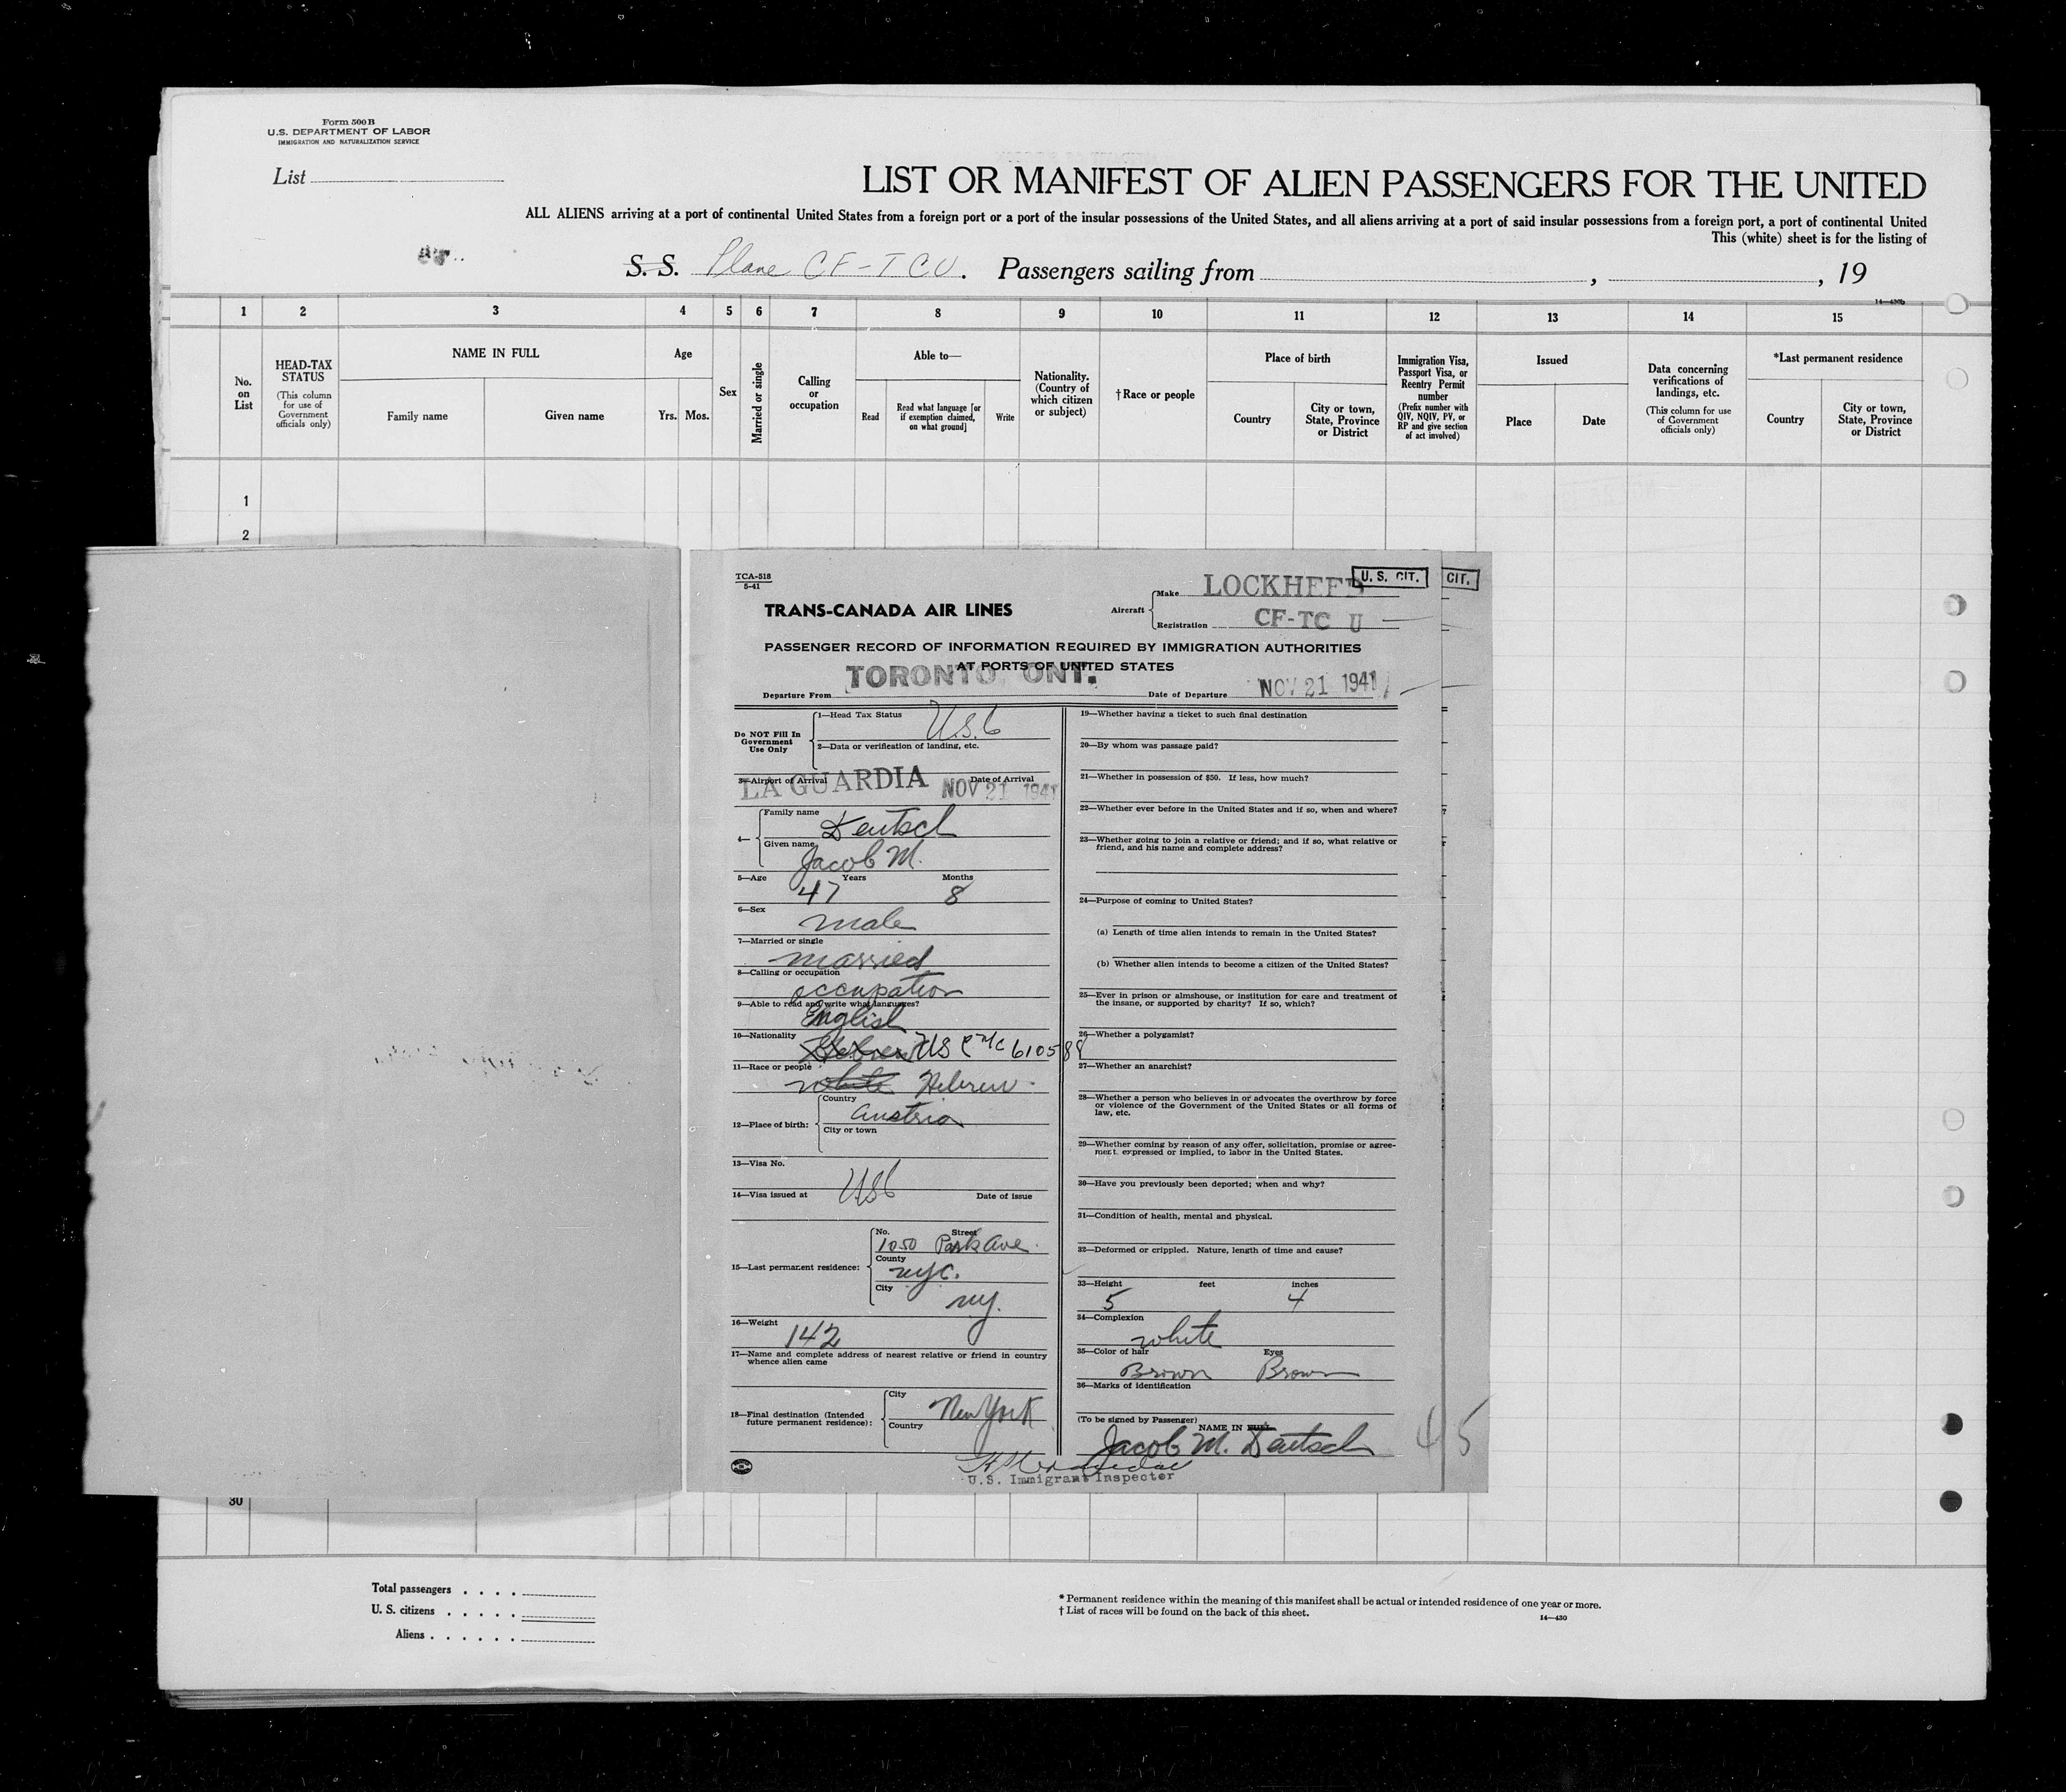 Form 500 B
U.S. DEPARTMENT OF LABOR
IMMIGRATION AND NATURALIZATION SERVICE
List
LIST OR MANIFEST OF ALIEN PASSENGERS FOR THE UNITED
ALL ALIENS arriving at a port of continental United States from a foreign port or a port of the insular possessions of the United States, and all aliens arriving at a port of said insular possessions from a foreign port, a port of continental United
This (white) sheet is for the listing of
S. S. Plane CF-TCU. Passengers sailing from , , 19
14—430b
1 2 3 4 5 6 7 8 9 10 11 12 13 14 15
No. on List
HEAD-TAX STATUS
(This column for use of Government officials only)
NAME IN FULL
Family name Given name
Age
Yrs. Mos.
Sex
Married or single
Calling or occupation
Able to—
Read
Read what language [or if exemption claimed, on what ground]
Write
Nationality. (Country of which citizen or subject)
†Race or people
Place of birth
Country
City or town, State, Province or District
Immigration Visa, Passport Visa, or Reentry Permit number
(Prefix number with QIV, NQIV, PV, or RP and give section of act involved)
Issued
Place Date
Data concerning verifications of landings, etc.
(This column for use of Government officials only)
*Last permanent residence
Country
City or town, State, Province or District
1
2
TCA-518
5-41
TRANS-CANADA AIR LINES
Aircraft
Make LOCKHEED
U. S. CIT. CIT.
Registration CF-TC U
PASSENGER RECORD OF INFORMATION REQUIRED BY IMMIGRATION AUTHORITIES
AT PORTS OF UNITED STATES
Departure From TORONTO ONT. Date of Departure NOV 21 1941
Do NOT Fill In Government Use Only
1—Head Tax Status USC
2—Data or verification of landing, etc.
3—Airport of Arrival LA GUARDIA Date of Arrival NOV 21 1941
4— Family name Deutsch
Given name Jacob M.
5—Age 47 Years Months 8
6—Sex male
7—Married or single married
8—Calling or occupation occupation
9—Able to read and write what languages? English
10—Nationality Hebrew US C 610588
11—Race or people white Hebrew
12—Place of birth: Country Austria
City or town
13—Visa No.
14—Visa issued at USC Date of issue
15—Last permanent residence: No. 1050 Street Park Ave.
County NYC.
City NY.
16—Weight 142
17—Name and complete address of nearest relative or friend in country
whence alien came
18—Final destination (Intended future permanent residence): City New York
Country
19—Whether having a ticket to such final destination
20—By whom was passage paid?
21—Whether in possession of $50. If less, how much?
22—Whether ever before in the United States and if so, when and where?
23—Whether going to join a relative or friend; and if so, what relative or
friend, and his name and complete address?
24—Purpose of coming to United States?
(a) Length of time alien intends to remain in the United States?
(b) Whether alien intends to become a citizen of the United States?
25—Ever in prison or almshouse, or institution for care and treatment of
the insane, or supported by charity? If so, which?
26—Whether a polygamist?
27—Whether an anarchist?
28—Whether a person who believes in or advocates the overthrow by force
or violence of the Government of the United States or all forms of
law, etc.
29—Whether coming by reason of any offer, solicitation, promise or agree-
ment, expressed or implied, to labor in the United States.
30—Have you previously been deported; when and why?
31—Condition of health, mental and physical.
32—Deformed or crippled. Nature, length of time and cause?
33—Height 5 feet 4 inches
34—Complexion white
35—Color of hair Brown Eyes Brown
36—Marks of identification
(To be signed by Passenger)
NAME IN FULL
Jacob M. Deutsch
45
U.S. Immigrant Inspector
30
Total passengers . . . .
U. S. citizens . . . . .
Aliens . . . . . .
* Permanent residence within the meaning of this manifest shall be actual or intended residence of one year or more.
† List of races will be found on the back of this sheet.
14—430